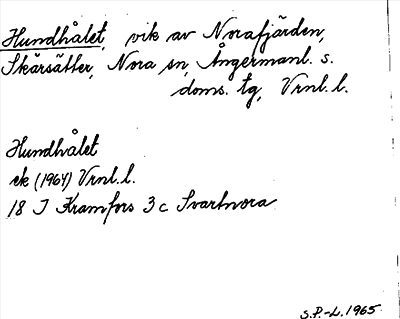 Hundhålet, vik av Norafjärden,
Skärsätter, Nora sn, Ångermanl. s.
doms. tg, Vrnl. l.
Hundhålet
ek (1964) Vrnl. l.
18 J Kramfors 3 c Svartnora
S.P.-L. 1965